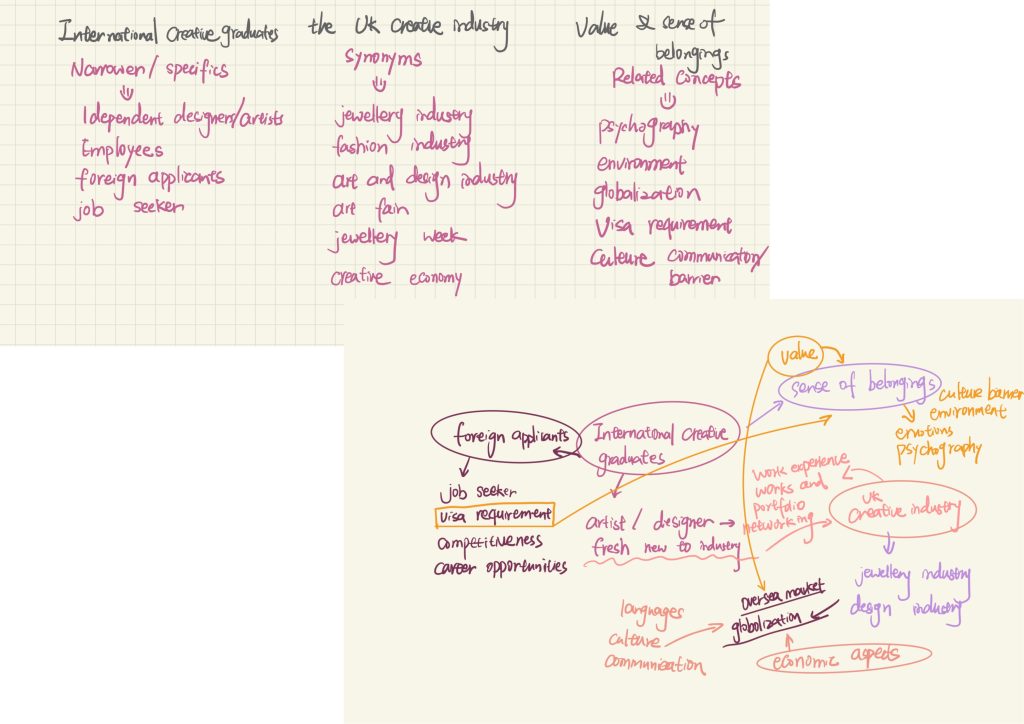 International Creative graduates
Narrower / specifics
Idependent designers/artists
Employees
foreign applicants
job seeker
the UK Creative industry
Synonyms
jewellery industry
fashion industry
art and design industry
art fair
jewellery week
creative economy
Value & sense of
belongings
Related Concepts
psychography
environment
globalization
Visa requirement
Culture communication/
barrier
Value
sense of belongings
culture barrier
environment
emotions
psychography
foreign applicants
International Creative
graduates
job seeker
visa requirement
competitiveness
career opportunities
artist / designer
fresh new to industry
work experience
works and
portfolio
networking
UK
Creative industry
jewellery industry
design industry
oversea market
globalization
languages
culture
communication
economic aspects